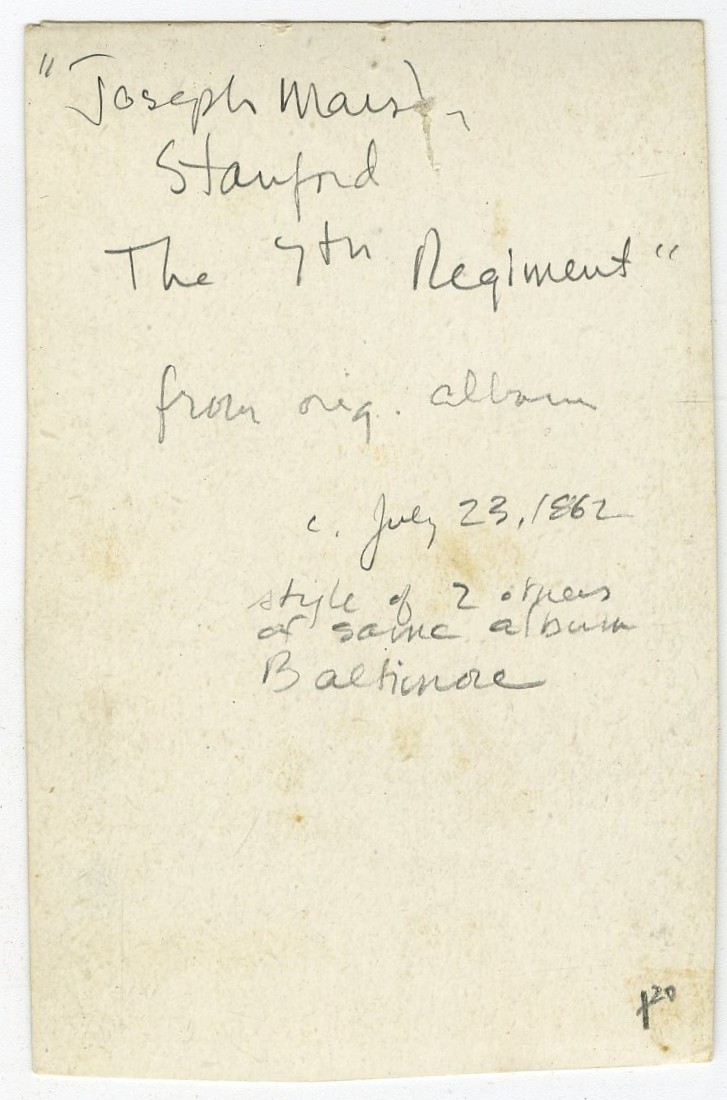 "Joseph
Stanford
The 7th Regiment"
from orig. album
c. July 23, 1862
style of 2 others
of same album
Baltimore